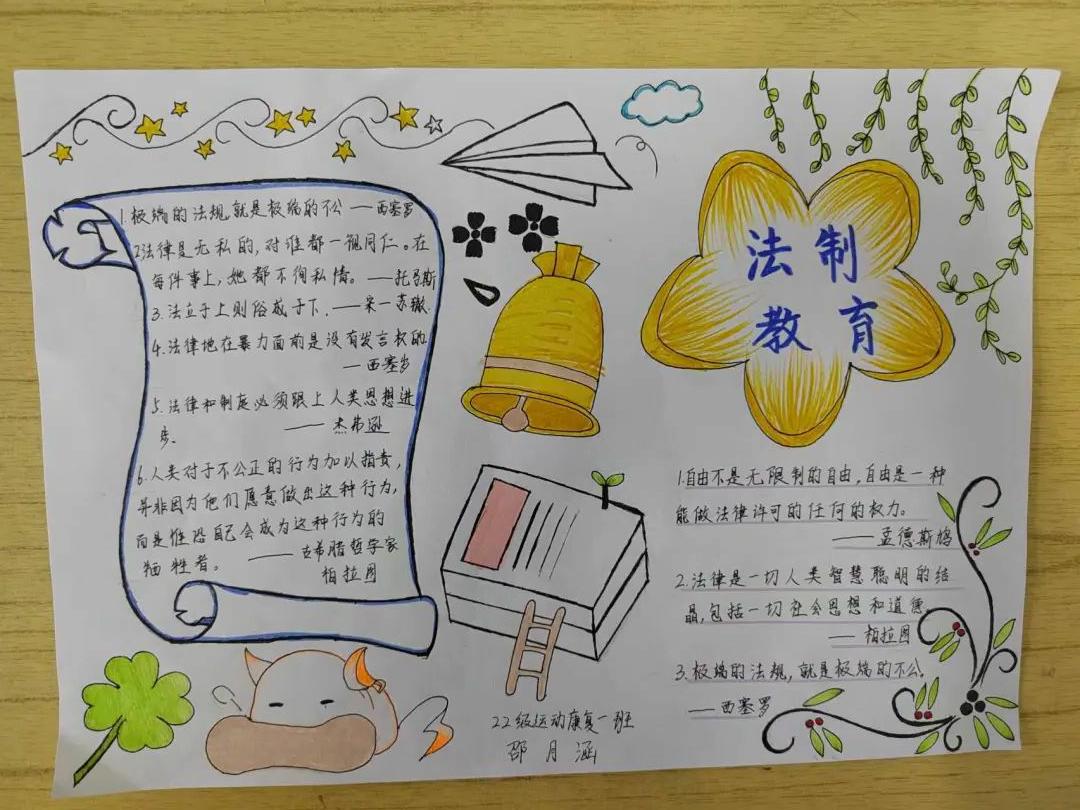 1.极端的法规,就是极端的不公——西塞罗
2法律是无私的,对谁都一视同仁。在
每件事上,她都不徇私情。——托马斯
3.法立于上则俗成于下.——宋一苏辙.
4.法律地在暴力面前是没有发言权的
—西塞罗
5.法律和制度必须跟上人类思想进
步. ——杰弗逊
6.人类对于不公正的行为加以指责,
并非因为他们愿意做出这种行为,
而是惟恐自己会成为这种行为的
牺牲者。——古希腊哲学家
柏拉图
法制
教育
1.自由不是无限制的自由,自由是一种
能做法律许可的任何的权力。
——孟德斯鸠
2.法律是一切人类智慧聪明的结
晶,包括一切社会思想和道德.
——柏拉图
3.极端的法规,就是极端的不公.
——西塞罗
22级运动康复一班
邵月涵